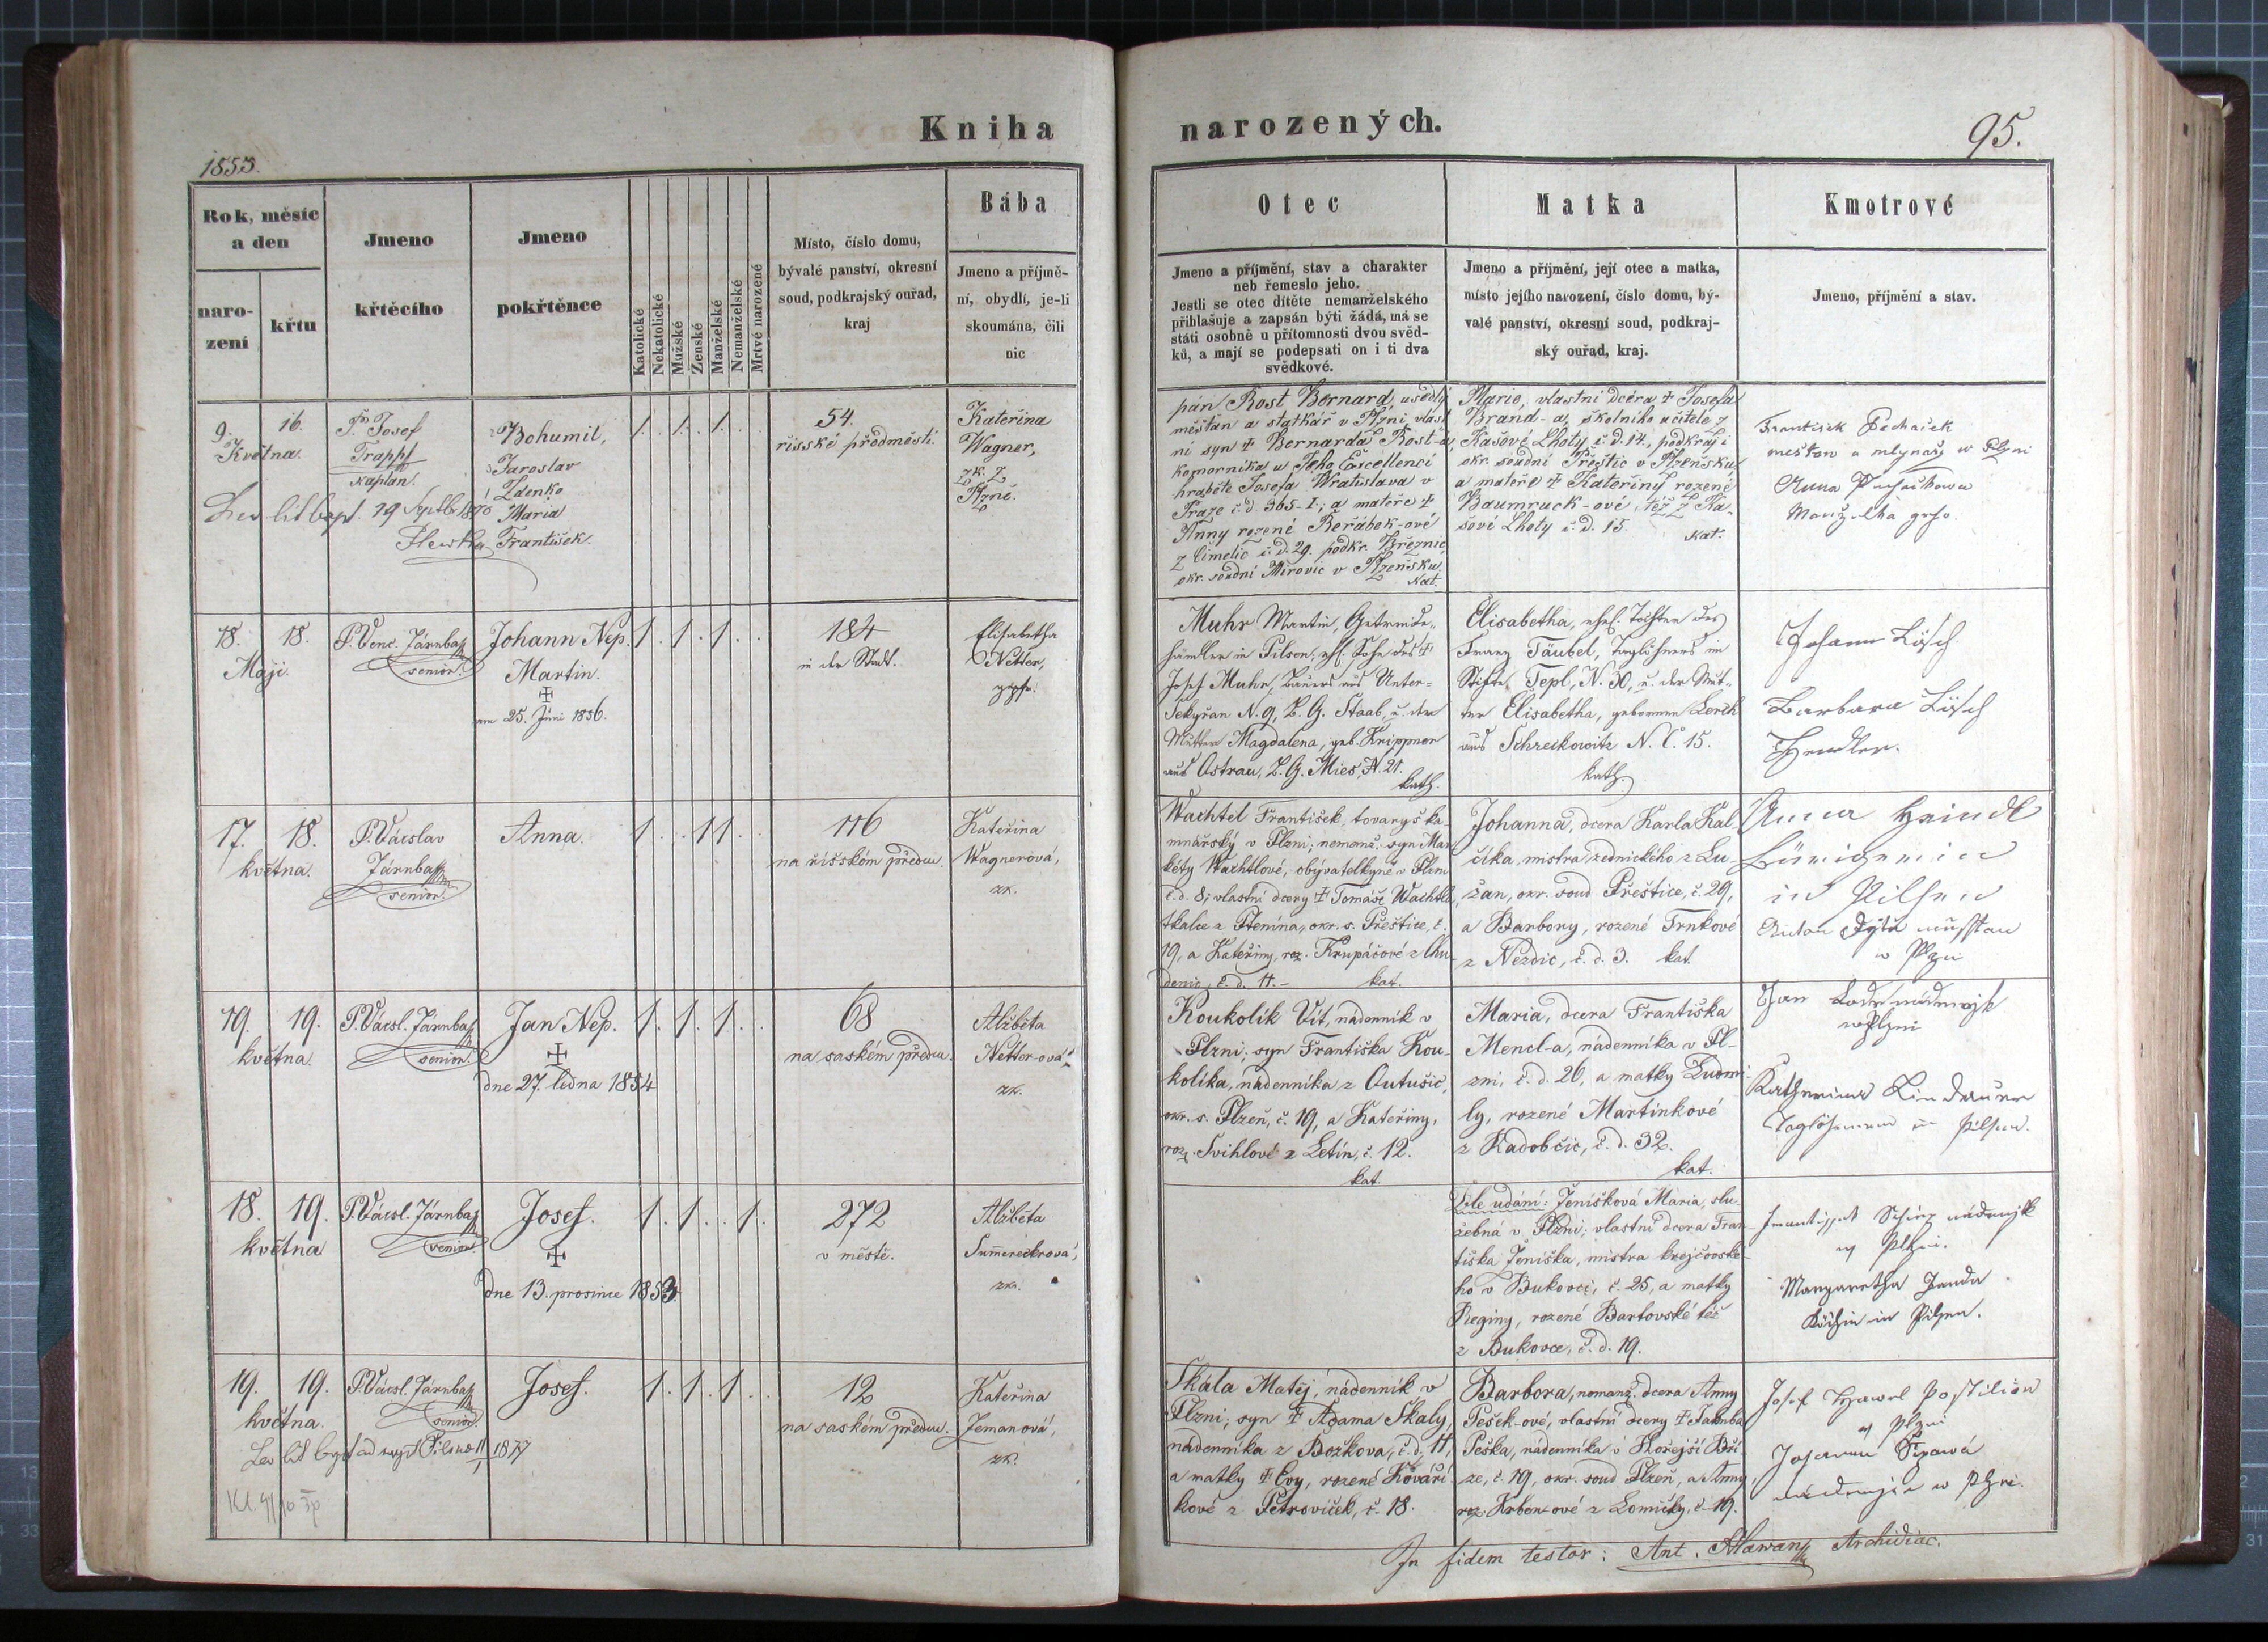 Kniha
narozených.
95.
1853.
Rok, měsíc
a den
naro-
zení
křtu
Jmeno
křtěcího
Jmeno
pokřtěnce
Katolické
Nekatolické
Mužské
Ženské
Manželské
Nemanželské
Mrtvé narozené
Místo, číslo domu,
bývalé panství, okresní
soud, podkrajský ouřad,
kraj
Bába
Jmeno a příjmě-
ní, obydlí, je-li
skoumána, čili
nic
Otec
Jmeno a příjmění, stav a charakter
neb řemeslo jeho.
Jestli se otec dítěte nemanželského
přihlašuje a zapsán býti žádá, má se
státi osobně u přítomnosti dvou svěd-
ků, a mají se podepsati on i ti dva
svědkové.
Matka
Jmeno a příjmění, její otec a matka,
místo jejího narození, číslo domu, bý-
valé panství, okresní soud, podkraj-
ský ouřad, kraj.
Kmotrové
Jmeno, příjmění a stav.
9. 16.
Května.
P. Josef
Trappl
Kaplan.
Bohumil,
Jaroslav
Zdenko
Maria
František.
1. 1. 1.
54.
říšské předměstí.
Kateřina
Wagner,
zk. z
Plzně.
pán Rost Bernard, usedlý
měšťan a statkář v Plzni, vlast
ní syn † Bernarda Rost-a,
komorníka u Jeho Excellencí
hraběte Josefa Wratislava v
Praze č. d. 365-I; a mateře †
Anny rozené Řeřábek-ové
z Čimelic č. d. 29. podkr. Březnic,
okr. soudní Mirovic v Plzeňsku.
Kat.
Marie, vlastní dcéra † Josefa
Brand-a, školního učitele z
Kašové Lhoty č. d. 14., podkrají
okr. soudní Přeštic v Plzeňsku
a mateře † Kateřiny rozené
Baumruck-ové též z Ka-
šové Lhoty č. d. 15.
Kat.
František Pechaček
měšťan a mlynář w Plzni
Anna
Manželka geho.
18. 18.
Maji.
P. Venc. Járnba
senior.
Johann Nep.
Martin.
†
am 25. Juni 1856.
1. 1. 1.
184
in der Stadt.
Elisabetha
Netter,
gepr.
Muhr Martin, Getreide-
händler in Pilsen; ehl. Sohn des †
Josef Muhr, Bauers aus Unter-
Sekyřan N. 9, B. G. Staab, u. der
Mutter Magdalena, geb. Krippner
aus Ostrau, B. G. Mies, N. 21.
kath.
Elisabetha, ehel. Tochter des
Franz Täubel, Taglöhners im
Stifte Tepl, N. 30, u. der Mut-
ter Elisabetha, geborenen Lerch
aus Schreikowitz N. C. 15.
kath.
Johann Lösch
Barbara Lösch
Hendler.
17. 18.
května.
P. Václav
Járnba
senior.
Anna.
1. . 11.
116
na říšském předm.
Kateřina
Wagnerová,
zk.
Wachtel František, tovaryš ka-
mnářský v Plzni; nemanž. syn Mar
kéty Wachtlové, obývatelkyně v Plzni
č. d. 8; vlastní dcery † Tomáše Wachtla,
tkalce z Ptenína, okr. s. Přeštice, č.
19, a Kateřiny, roz. Krupáčové z Chu-
denic, č. d. 11.- kat.
Johanna, dcera Karla Kal-
číka, mistra zednického z Lu-
žan, okr. soud Přeštice, č. 29,
a Barbory, rozené Trnkové
z Nezdic, č. d. 3. kat.
Anna Heindl
Bürigerin
in Pilsen
w Plzni
19. 19.
května.
P. Václ. Járnba
senior.
Jan Nep.
†
dne 27. ledna 1854
1. 1. 1.
68
na saském předm.
Alžběta
Netter-ová,
zk.
Koukolík Vít, nádenník v
Plzni; syn Františka Kou-
kolíka, nádenníka z Outušic,
okr. s. Plzeň, č. 19, a Kateřiny,
roz. Švihlové z Letin, č. 12.
kat.
Maria, dcera Františka
Mencl-a, nádenníka v Pl-
zni, č. d. 26, a matky Ludmi-
ly, rozené Martínkové
z Radobčic, č. d. 32.
kat.
Jan nádenník
w Plzni
Katherina Lindauer
Taglöhnerin in Pilsen.
18. 19.
května
P. Václ. Járnba
senior.
Josef.
†
dne 13. prosince 1853.
1. 1. . 1.
272
v městě.
Alžběta
Summereckrová,
zk.
Dle udání: Jeníšková Maria, slu-
žebná v Plzni; vlastní dcera Fran-
tiška Jeníška, mistra krejčovské-
ho v Bukovci, č. 25, a matky
Reginy, rozené Bartovské též
z Bukovce, č. d. 19.
nádenník
w Plzni.
Margaretha Janda
Köchin in Pilsen.
19. 19.
května.
P. Václ. Járnba
senior
Josef.
1. 1. 1.
12
na saském předm.
Kateřina
Zemanová,
zk.
Skála Matěj, nádenník v
Plzni; syn † Adama Skály,
nádenníka z Božkova, č. d. 11,
a matky † Evy, rozené Kovaří-
kové z Petroviček, č. 18.
Barbora, nemanž. dcera Anny
Pešek-ové, vlastní dcery † Jakuba
Peška, nádenníka v Hořejší Bří-
ze, č. 19, okr. soud Plzeň, a Anny,
roz. Krbec-ové z Lomičky, č. 19.
Josef Hawel Postilion
w Plzni
Johanna
w Plzni.
In fidem testor: Ant. Hlawan Archidiac.